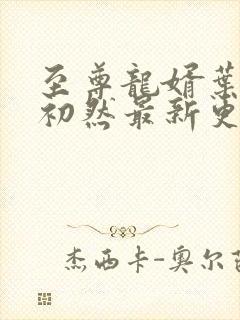 至尊龍婿葉
初然最新更
杰西卡-奥尔芭